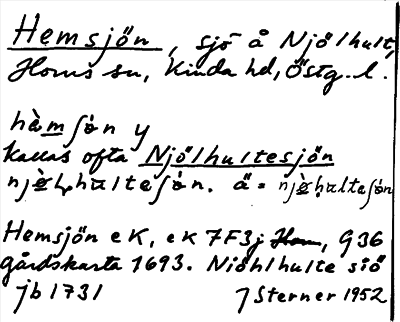 Hemsjön, sjö å Njölhult,
Horns sn, Kinda hd, Östg. l.
hàmʃön y
kallas ofta Njölhultesjön
njö̀ḷhulteʃön. ä = njö̀ḥulteʃön
Hemsjön eK, eK 7F3j Horn, G36
gårdskarta 1693. Niöhlhulte siö
jb 1731 J Sterner 1952